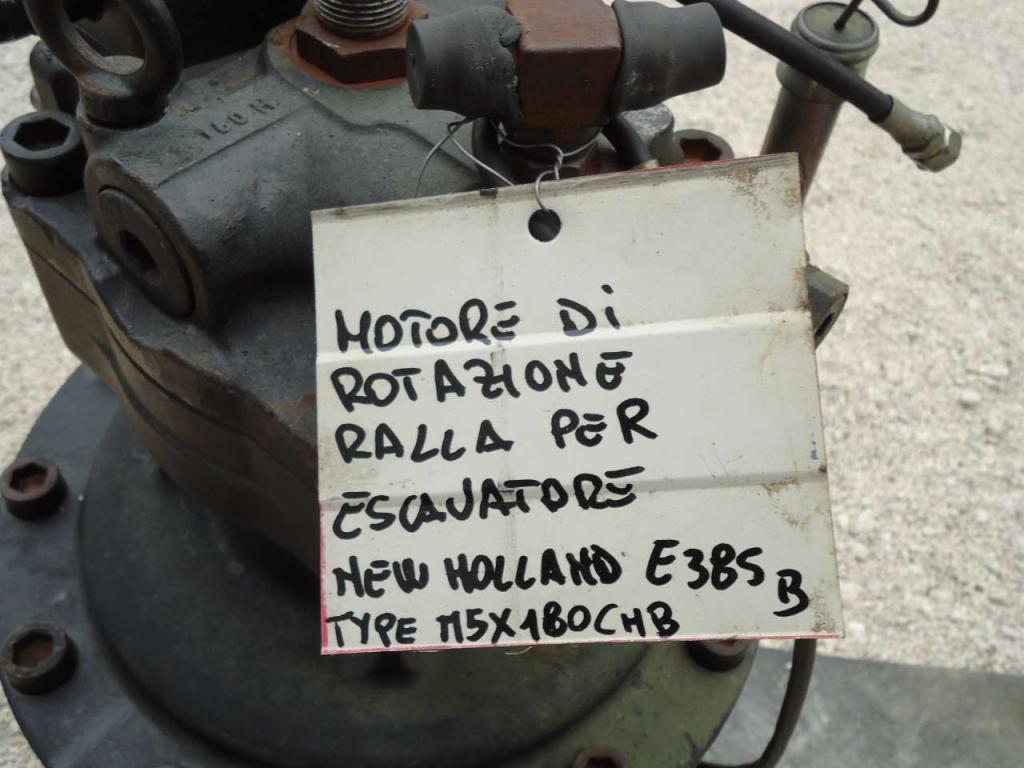 MOTORE Di
ROTAZIONE
RALLA PER
ESCAVATORE
NEW HOLLAND E385 B
TYPE M5X180CHB